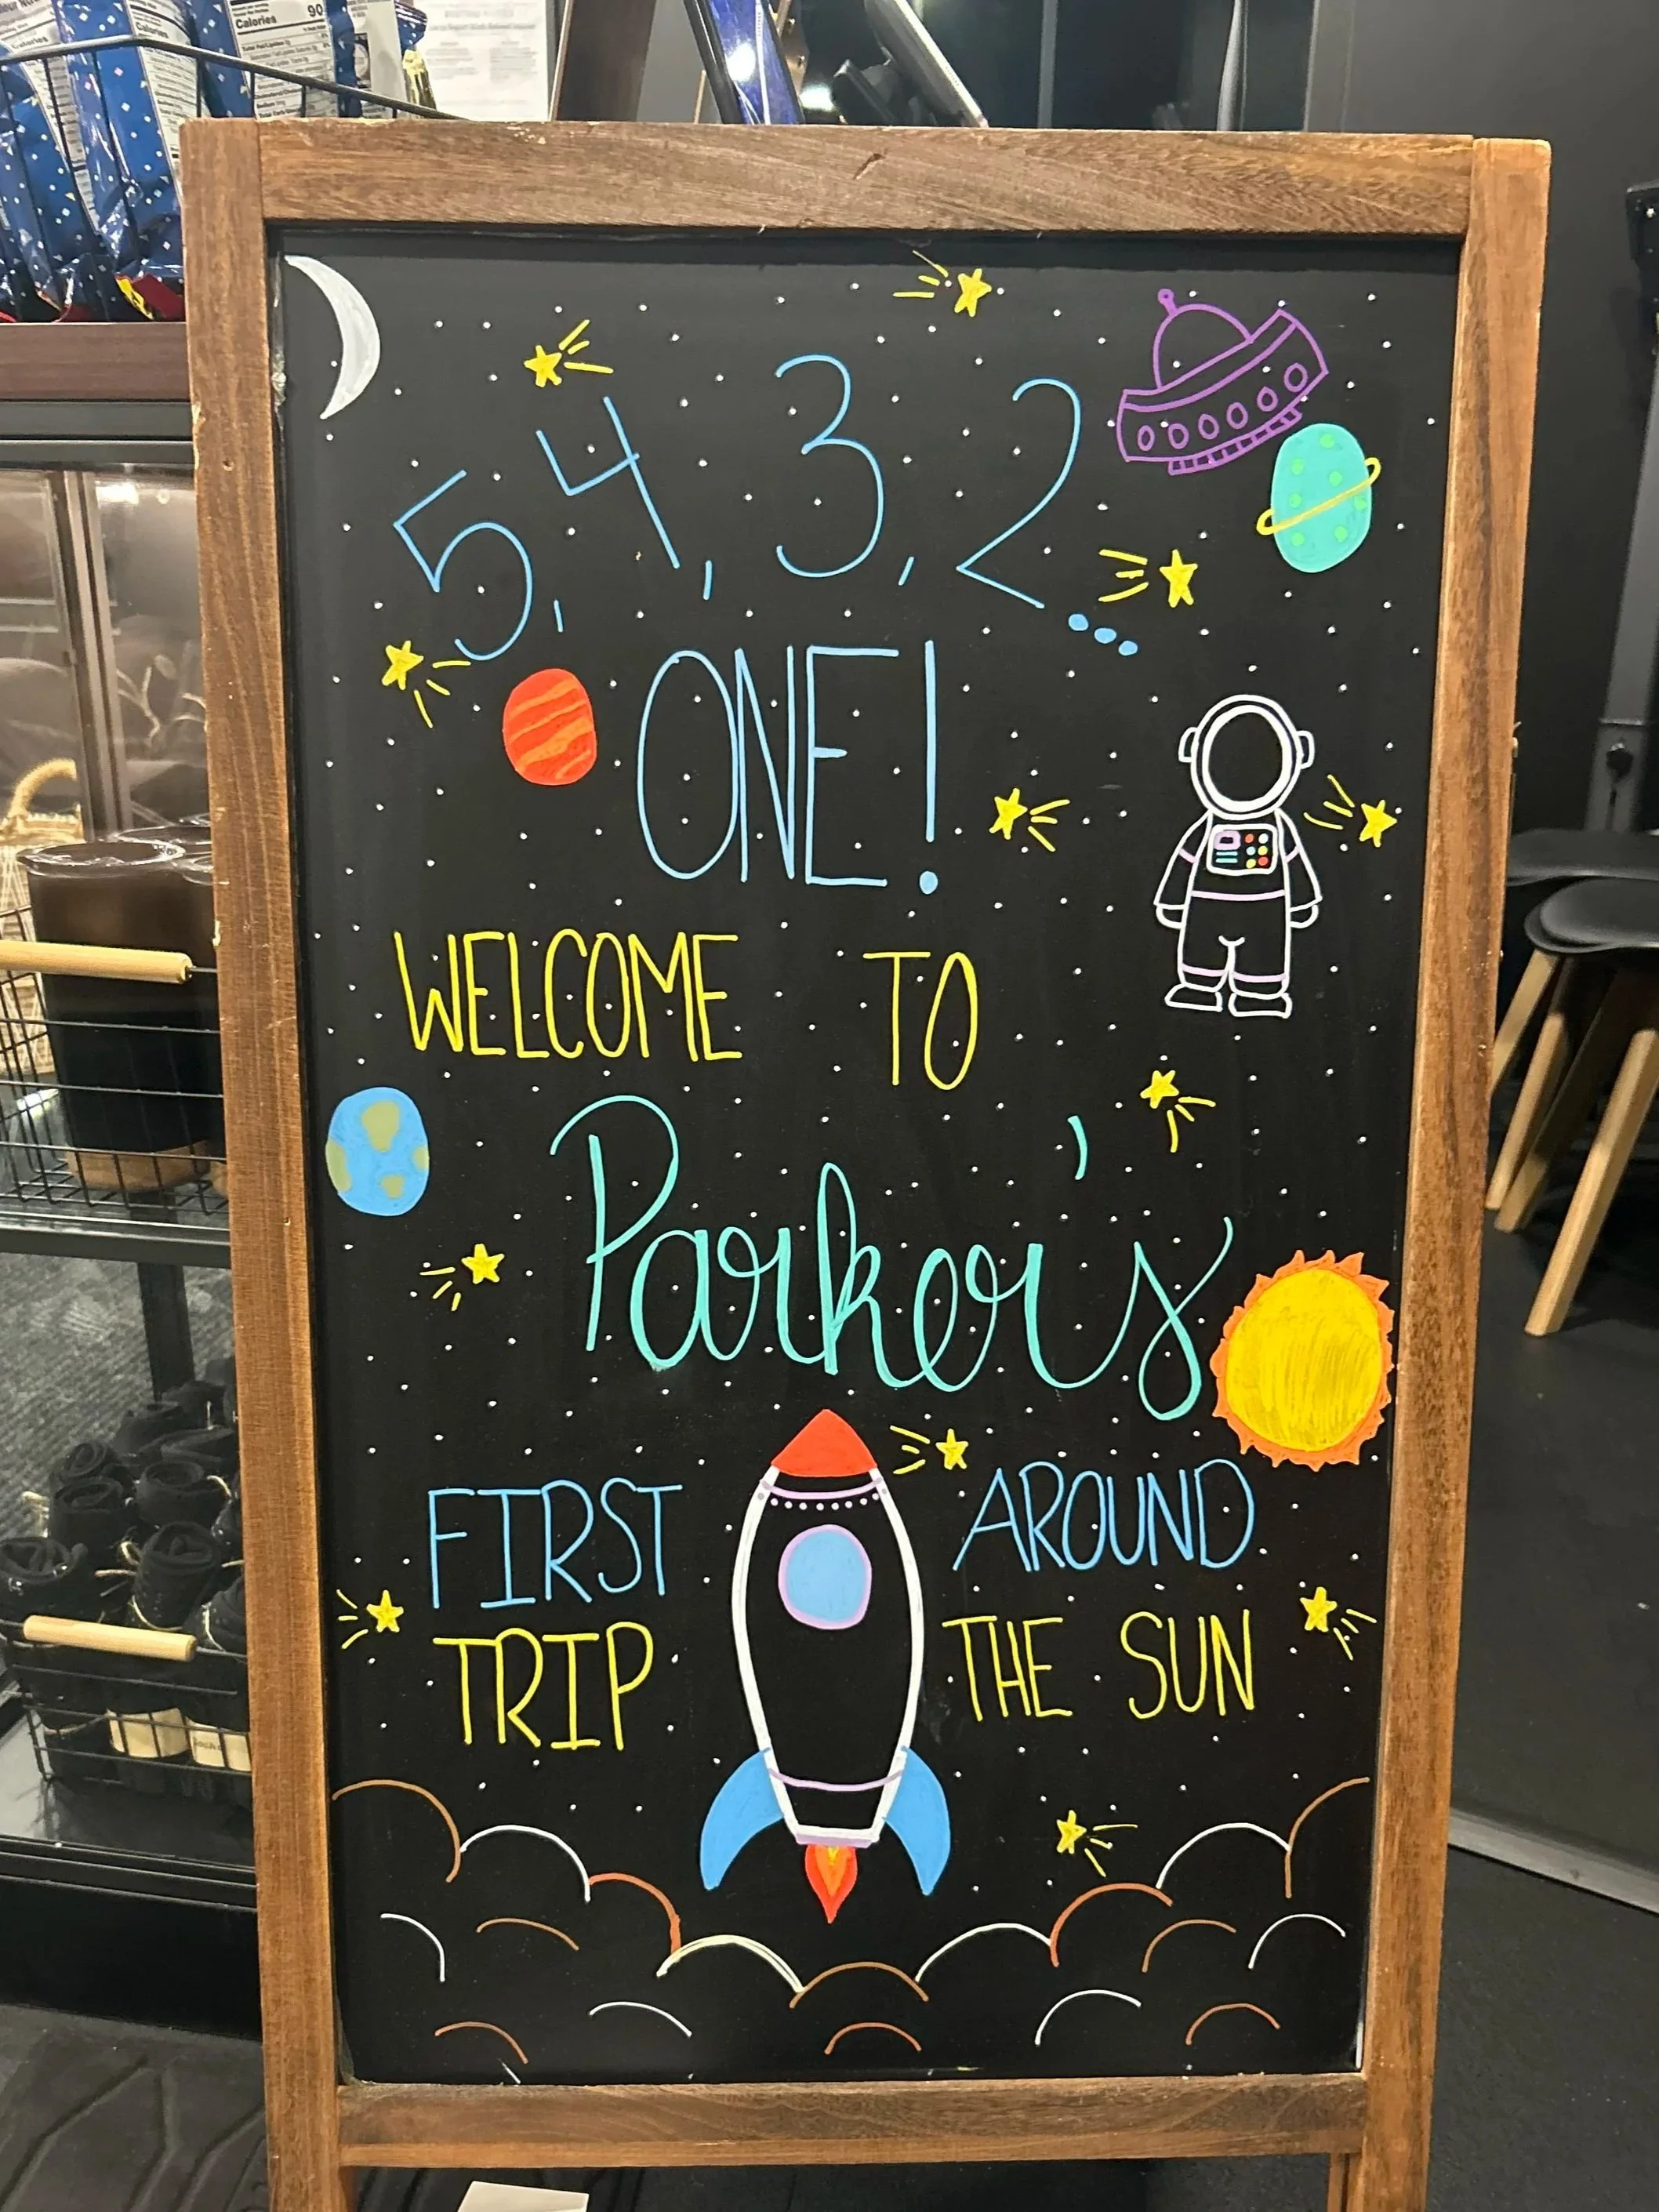 Calories 90
Calories
5, 4, 3, 2...
ONE!
WELCOME TO
Parker's
FIRST
TRIP
AROUND
THE SUN